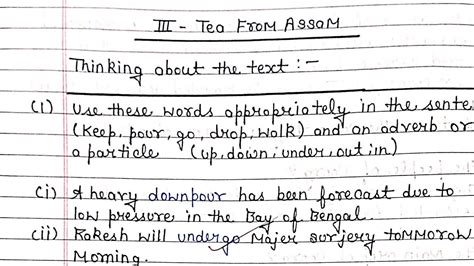 III - Tea From Assam
Thinking about the text :-
(1) Use these words appropriately in the sente
(Keep, pour, go, drop, walk) and an adverb or
a particle (up, down, under, out, in)
(i) A heavy downpour has been forecast due to
low pressure in the Bay of Bengal.
(ii) Rakesh will undergo Majer surjery tommorow
Morning.